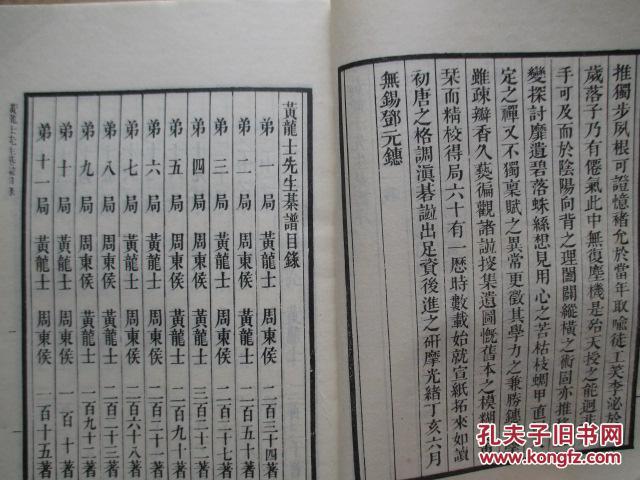 推獨步夙根可證憶褚允於當年取嘘徒工笑李泌於
歲落子乃有僊氣此中無復塵機是殆天授之能迥非
手可及而於陰陽向背之理闔闢縱橫之術固亦推
變探討靡遺碧落蛛絲想見用心之苦枯枝蜩甲直
定之禪又不獨稟賦之異常更徵其學力之兼勝鏸
雖疎瓣香久爇徧觀諸譜搜集遺圖慨舊本之模糊
琹而精校得局六十有一歷時數載始就宣紙拓來如讀
初唐之格調滇碁譜出足資後進之研摩光緒丁亥六月
無錫鄧元鏸
黃龍士先生棊譜目錄
弟一局 黃龍士 周東侯 二百三十四著
弟二局 周東侯 黃龍士 二百五十著
弟三局 黃龍士 周東侯 二百二十七著
弟四局 周東侯 黃龍士 三百二十二著
弟五局 周東侯 黃龍士 二百九十著
弟六局 黃龍士 周東侯 二百二十一著
弟七局 黃龍士 周東侯 二百六十八著
弟八局 周東侯 黃龍士 二百二十三著
弟九局 周東侯 黃龍士 二百九十二著
弟十局 黃龍士 周東侯 一百十著
弟十一局 黃龍士 周東侯 二百十五著
黃龍士先生棊譜目錄
孔夫子旧书网
www.kongfz.com